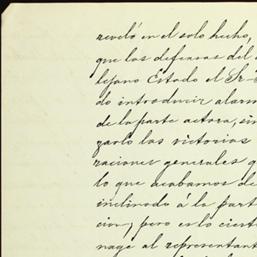 reveló en el solo hecho,
que los defensas del
lejano Estado el Sr
do introducir alarm
de la parte actora, sin
garlo las victorias
raciones generales q
lo que acabamos de
inclinado á la part
cion; pero es lo ciert
nage al representant